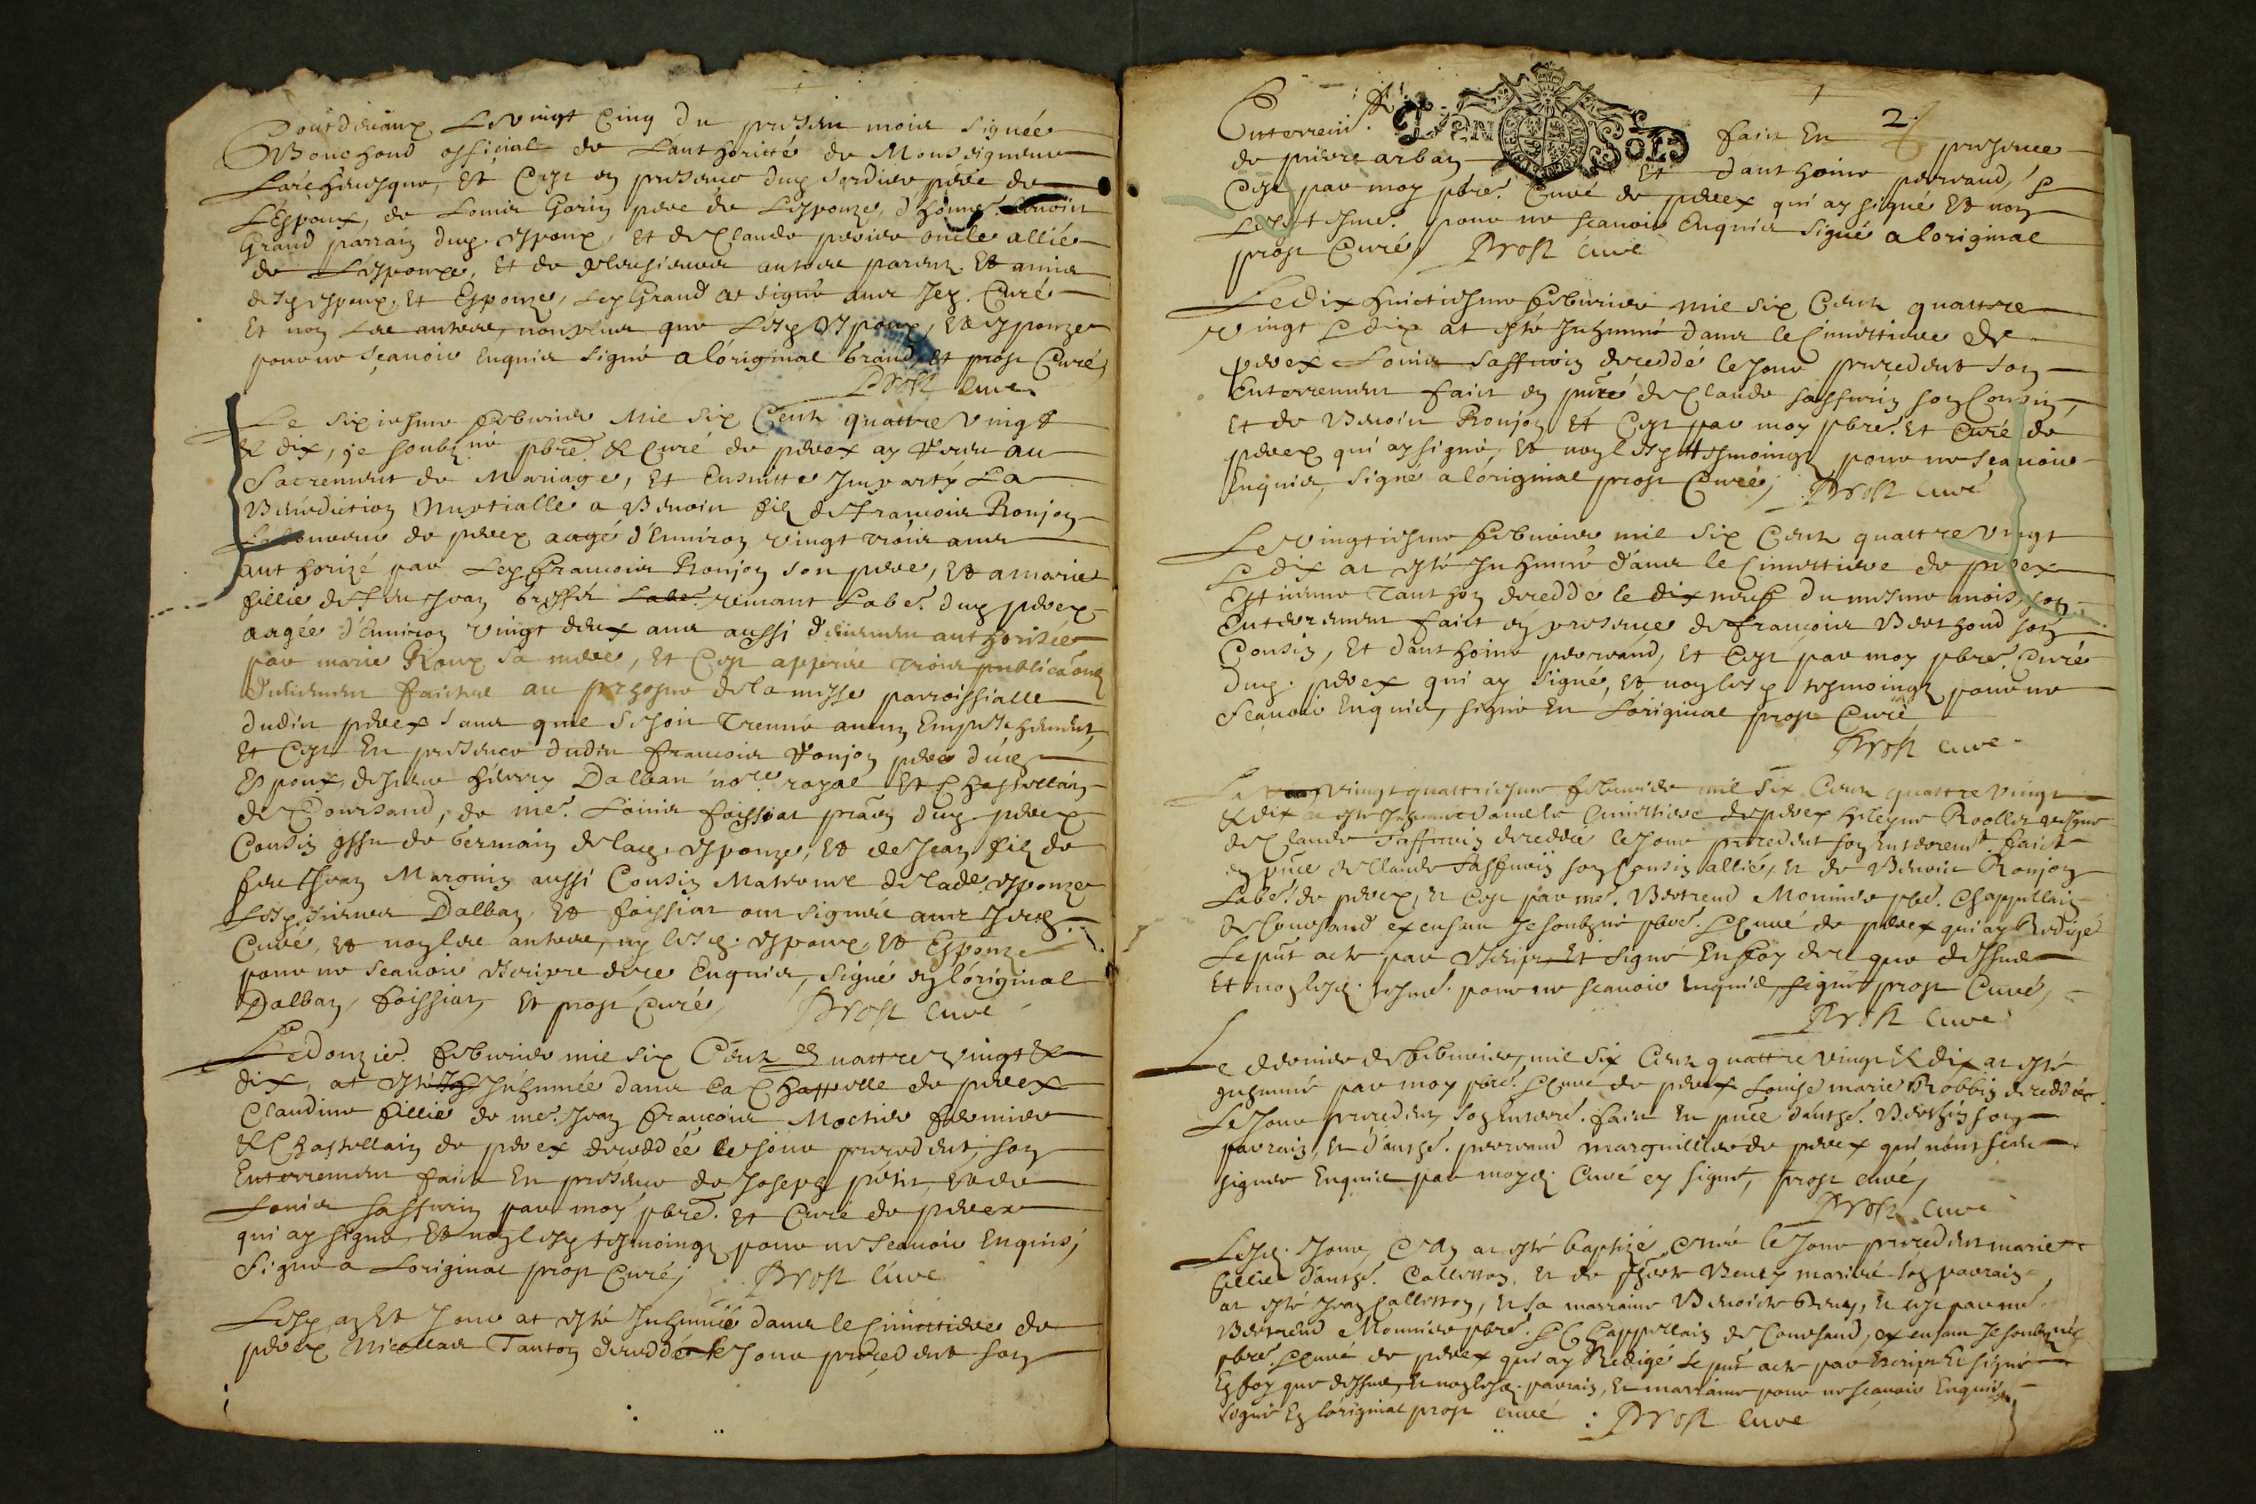 Bourdeaux, Le vingt Cinq du present mois signée
Bouchond official de L'authoritté de Monsseigneur
L'archevesque, Et Cest en presence dud. pere de
L'Espoux, de Louis Garin pere de L'esponze, d'honne. Benoist
Grand parrain dud. espoux, Et de Claude perier oncle allié
de L'esponze, et de plusieurs autres parens Et amis
desd. espoux, et Esponze, Led. Grand at signé avec Jed. Curé
Et non Les autres, non plus que Lesd. Espoux, Et esponze
pour ne sçavoir enquis signé a l'original Grand, et prost Curé,
Prost Curé
Le sixiesme febvrier Mil six Cent quattre vingt
& dix, je soubzné pbre. & Curé de preex ay Receu au
Sacrement de Mariage, Et Ensuitte Imparty La
Benediction Nuptialle a Benoist filz de Francois Ronjon
Laboureur de preex aagé d'Environ vingt trois ans
authorizé par Led. Francois Ronjon son pere, Et a marie
fillie de feu Jean vivant Labr. dud. preex
aagée d'Environ vingt deux ans aussi deuement authorisée
par marie Roux sa mere, Et Cest apprés trois publicaons
duement faictes au prosne de la messe parroissialle
dudit preex sans que se soit Treuvé aucun Empeschement,
Et Cest En presence dudit francois Ronjon pere dud.
Espoux, de sieur hierry Dalban nore. royal Et Chastellain
de Coursand, de me. Louis foissiat pratn. dud. preex
Cousin yssu de Germain de lad. esponze, Et de Jean filz de
feu Jean Marguin aussi Cousin Maternel de lade. esponze
Lesd. sieurs Dalban, Et foissiat ont signés avec Jed.
Curé, et non les autres, ny lesd. espoux, Et Esponze
pour ne sçavoir escripre de ce Enquis, signé en l'original
Dalban, foissiat, Et prost Curé, Prost Curé
Le douzie. febvrier mil six Cent quattre vingt &
dix, at esté Inhumée dans la Chappelle de preex
Claudine fillie de me. Jean francois Moctier fermier
& Chastellain de preex decedée le jour precedent, son
Enterrement faict En presence de Joseph petit, Et de
Louis saffurin par moy pbre. et Curé de preex
qui ay signé, Et non lesd. tesmoings pour ne sçavoir enquis,
signé a L'original prost Curé, Prost Curé
Lesd. an Et Jour at esté Inhumé dans le Cimettiere de
preex Nicollas Tanton decedé le Jour precedent son
2
Enterremt. faict En presence
de pierre arban Et d'anthoine perraud,
Cest par moy pbre. Curé de preex qui ay signé Et non
Lesd. tesms. pour ne sçavoir Enquis signé a l'original
prost Curé, Prost Curé
Le dix huictiesme febvrier mil six Cent quattre
vingt & dix at esté Inhumé dans le Cimettiere de
preex Louis saffurin decedé le Jour precedent son
Enterrement faict en pnce. de Claude saffurin son Cousin,
et de Benoist Ronjon, et Cest par moy pbre. et Curé de
preex qui ay signé, Et non lesd. tesmoings pour ne sçavoir
Enquis, signé a l'original prost Curé, Prost Curé
Le vingtiesme febvrier mil six Cent quattre vingt
& dix at esté Inhumé dans le Cimettiere de preex
Estienne Tanthon decedé le dix neuf du mesme mois, son
Enterement faict en presence de francois Berthond son
Cousin, Et d'anthoine perraud, Et Cest par moy pbre. Curé
dud. preex qui ay signé, Et non lesd. tesmoings pour ne
sçavoir Enquis, signé En L'original prost Curé
Prost Curé
Le vingt quattriesme febvrier mil six Cent quattre vingt
& dix at esté Inhumée dans le Cimettiere de preex
de Claude saffurin decedée le Jour precedent son Enterremt. faict
en pnce. de Claude saffurin son Cousin allié, et de Benoist Ronjon
Labr. de preex, et Cest par me. Bertrend Monnier pbre. Chappellain
de Coursand ex ensam Je soubzné pbre. & Curé de preex qui ay Redigé
Le pnt acte par Escript Et signé En foy de ce que dessus
Et non lesd. tesms. pour ne scavoir Enquis, signé prost Curé,
Prost Curé
Le dernier de febvrier, mil six Cent quattre vingt & dix at esté
Inhumé par moy pbre. & Curé de preex Louise marie Robbin decedée
Le Jour precedent, son Enterrt. faict En pnce. d'anthe. Berthin son
parrain, et d'anthe. perraud marguillier de preex qui n'ont sceu
signer Enquis par moyd. Curé ey signé, prost Curé,
Prost Curé
Lesd. Jour, Et An at esté baptizé, & née le Jour precedent marie
fillie d'anthe. Calletton, et de Benoiste Beney mariés son parrain
at esté Jean Calletton, et sa marraine Benoiste Beney, et cest par me.
Bertrend Monnier pbre. & Chappellain de Coursand, ex ensam Je soubzné
pbre. & Curé de preex qui ay Redigé Le pnt acte par Escript Et signé
En foy que dessus, Et non lesd. parrain, et marraine pour ne scavoir Enquis,
signé En l'original prost Curé : Prost Curé